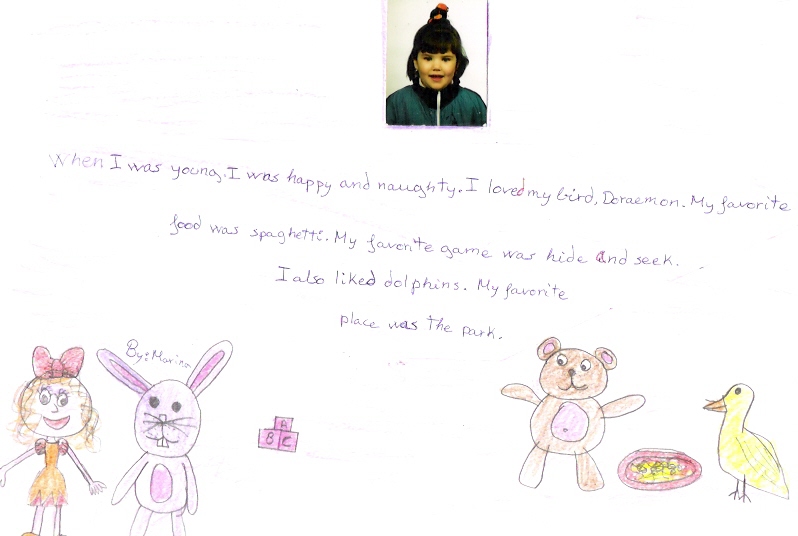 When I was young, I was happy and naughty. I loved my bird, Doraemon. My favorite
food was spaghetti. My favorite game was hide and seek.
I also liked dolphins. My favorite
place was the park.
By: Marina
A
B C